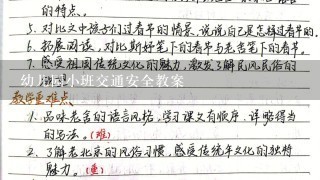 的特点。
5. 对比文中孩子们过春节的情景,说说自己是怎样过春节的。
6. 拓展阅读,对比斯好笔下的春节与老舍笔下的春节。
7. 感受祖国传统文化的魅力,激发了解民风民俗的
幼儿园小班交通安全教案
教学重难点、
1. 品味老舍的语言风格,学习课文有顺序、详略得当
的写法。(难)
2. 了解老北京的风俗习惯,感受传统年文化的独特
魅力。(重)